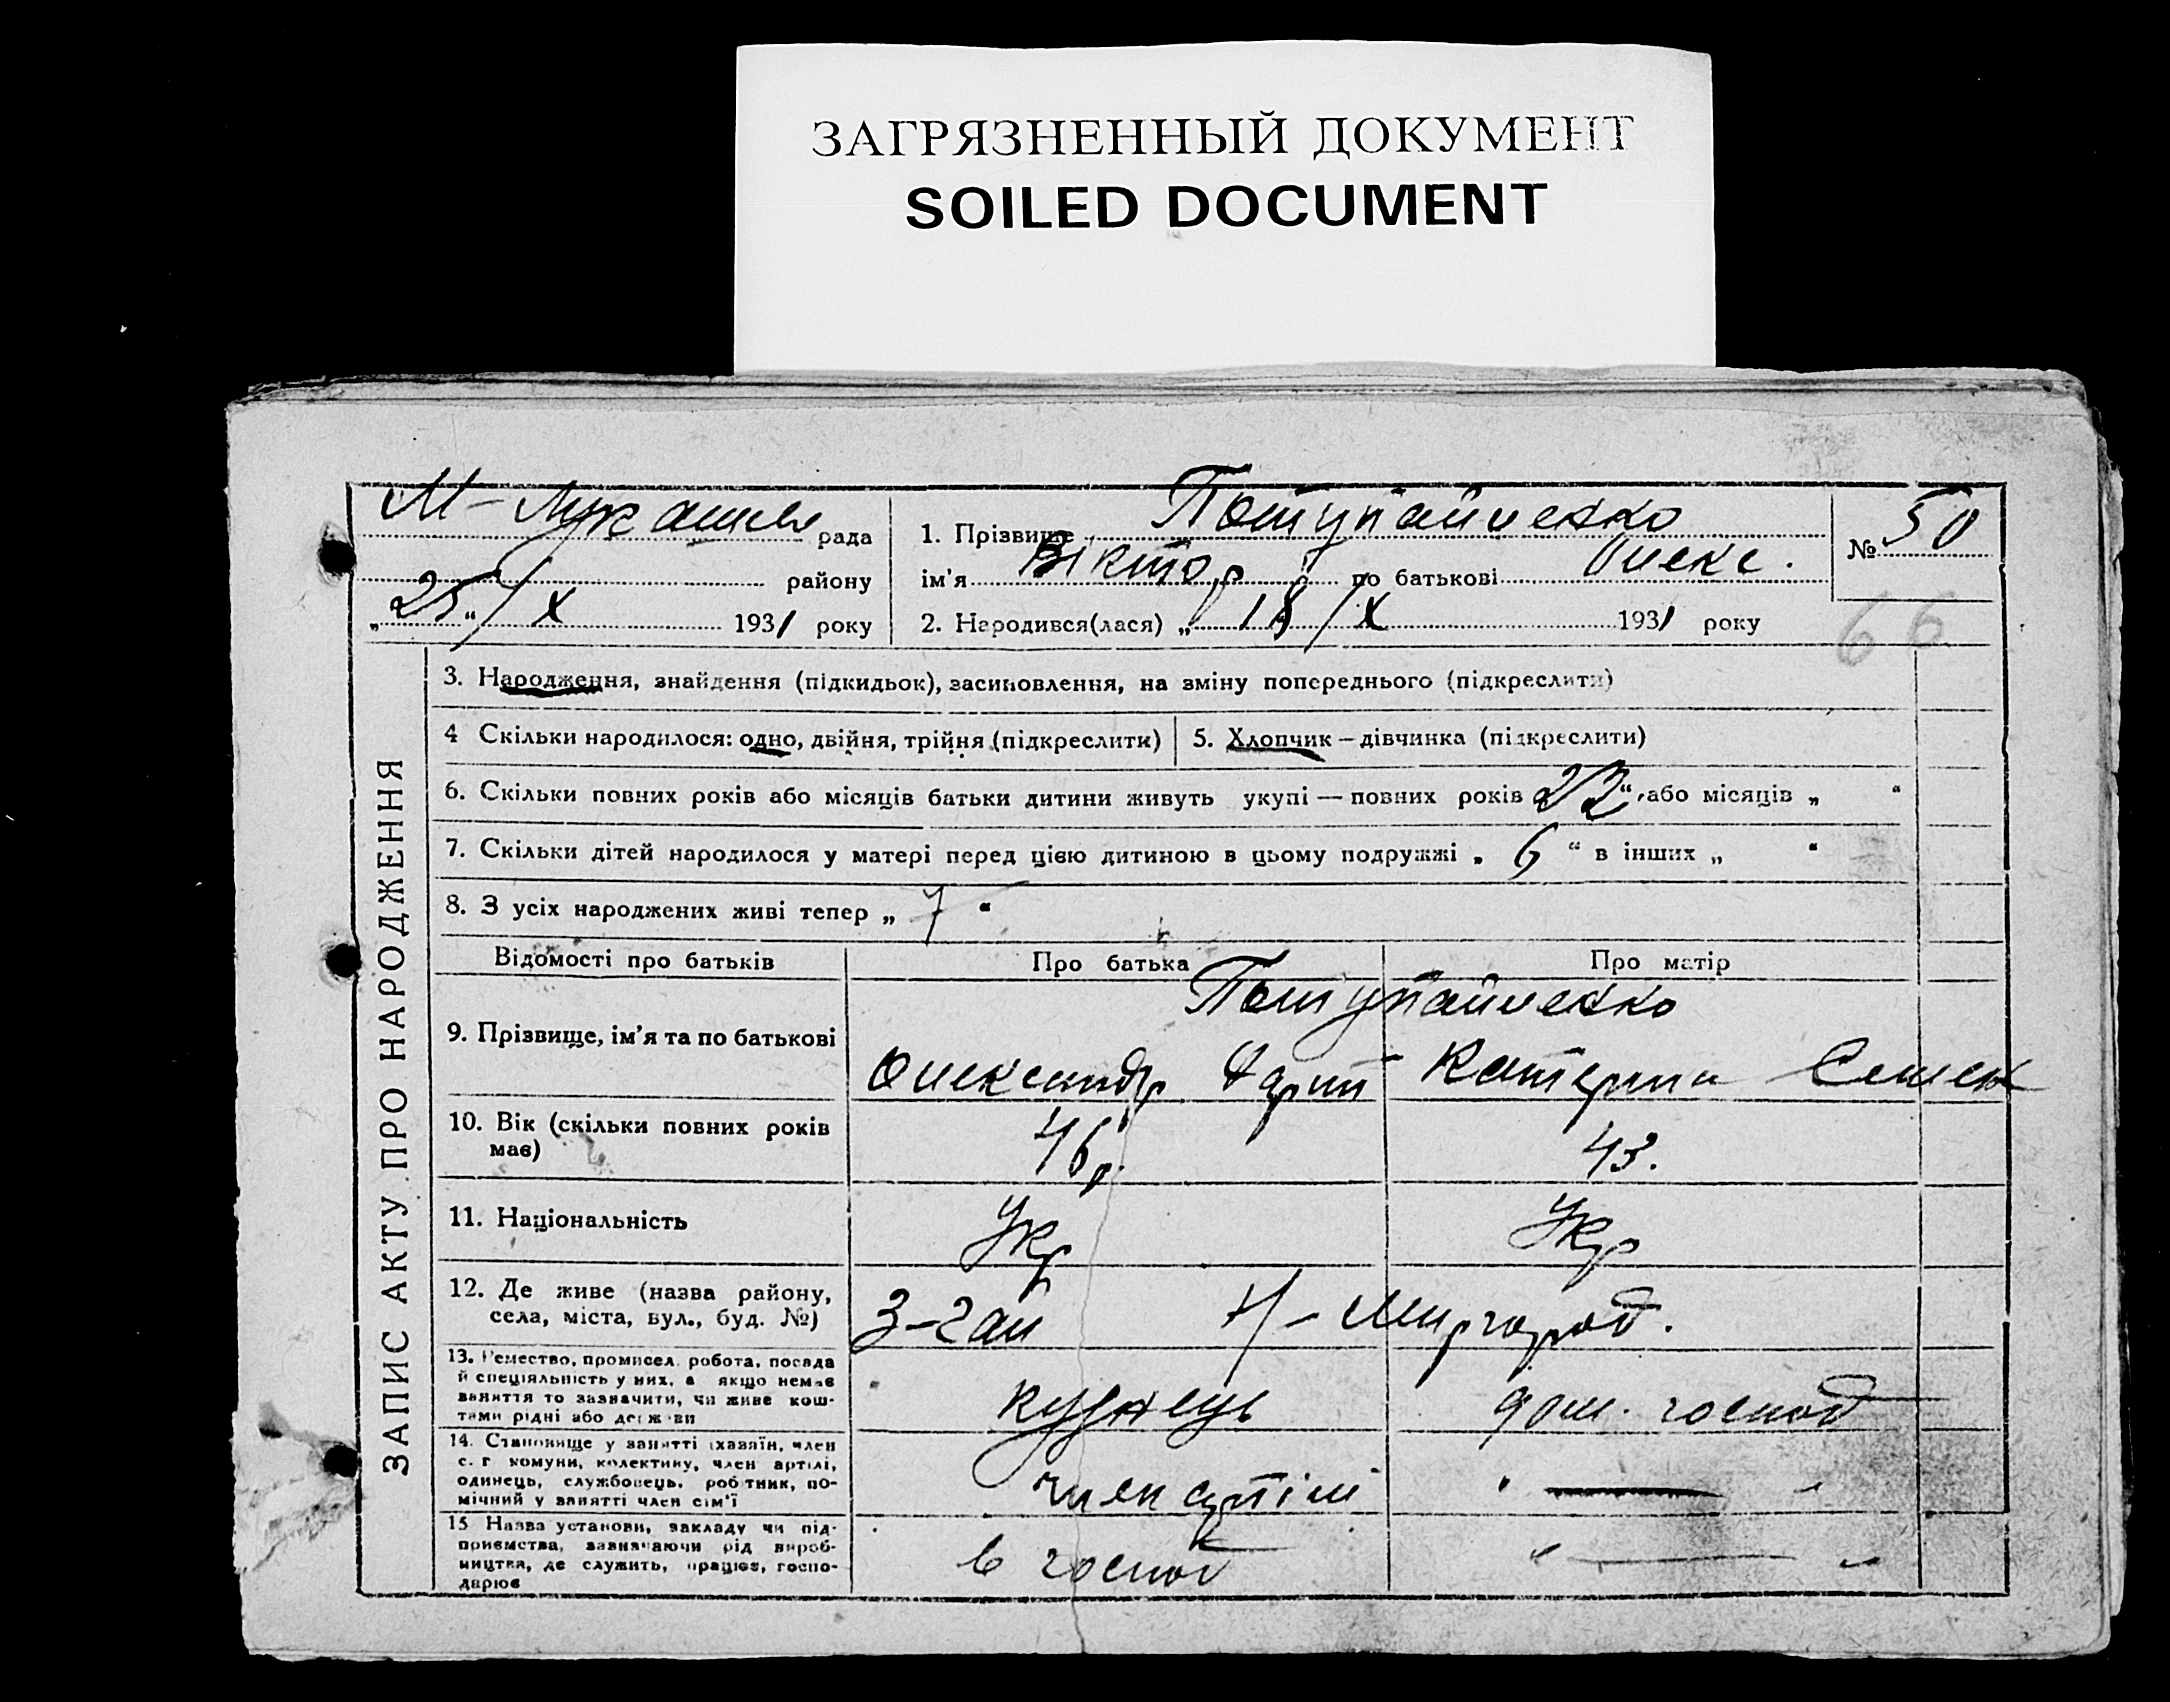 ЗАГРЯЗНЕННЫЙ ДОКУМЕНТ
SOILED DOCUMENT
М-Лукашів рада
району
„25“/X 1931 року
1. Прізвище Потупайченко
ім'я Віктор по батькові Олекс.
2. Народився(лася) „18/X 1931 року
№ 50
66
ЗАПИС АКТУ ПРО НАРОДЖЕННЯ
3. Народження, знайдення (підкидьок), засиновлення, на зміну попереднього (підкреслити)
4 Скільки народилося: одно, двійня, трійня (підкреслити)
5. Хлопчик — дівчинка (підкреслити)
6. Скільки повних років або місяців батьки дитини живуть укупі — повних років 23“, або місяців „ “
7. Скільки дітей народилося у матері перед цією дитиною в цьому подружжі „ 6 “ в інших „ “
8. З усіх народжених живі тепер „ 7 “
Відомості про батьків Про батька Про матір
Потупайченко
9. Прізвище, ім'я та по батькові Олександр Харит Катерина Семен
10. Вік (скільки повних років має) 46 р. 43.
11. Національність Укр Укр
12. Де живе (назва району, села, міста, вул., буд. №) З-Гай Н-Миргород.
13. Ремество, промисел, робота, посада
й спеціяльність у них, а якщо немає
заняття то зазначити, чи живе кош-
тами рідні або держави
кузнець дом. господ
14. Становище у занятті (хазяїн, член
с. г комуни, колективу, член артілі,
одинець, службовець, робітник, по-
мічний у занятті член сім'ї
член артілі " — "
15 Назва установи, закладу чи під-
приємства, зазначаючи рід вироб-
ництва, де служить, працює, госпо-
дарює
в господ " — "